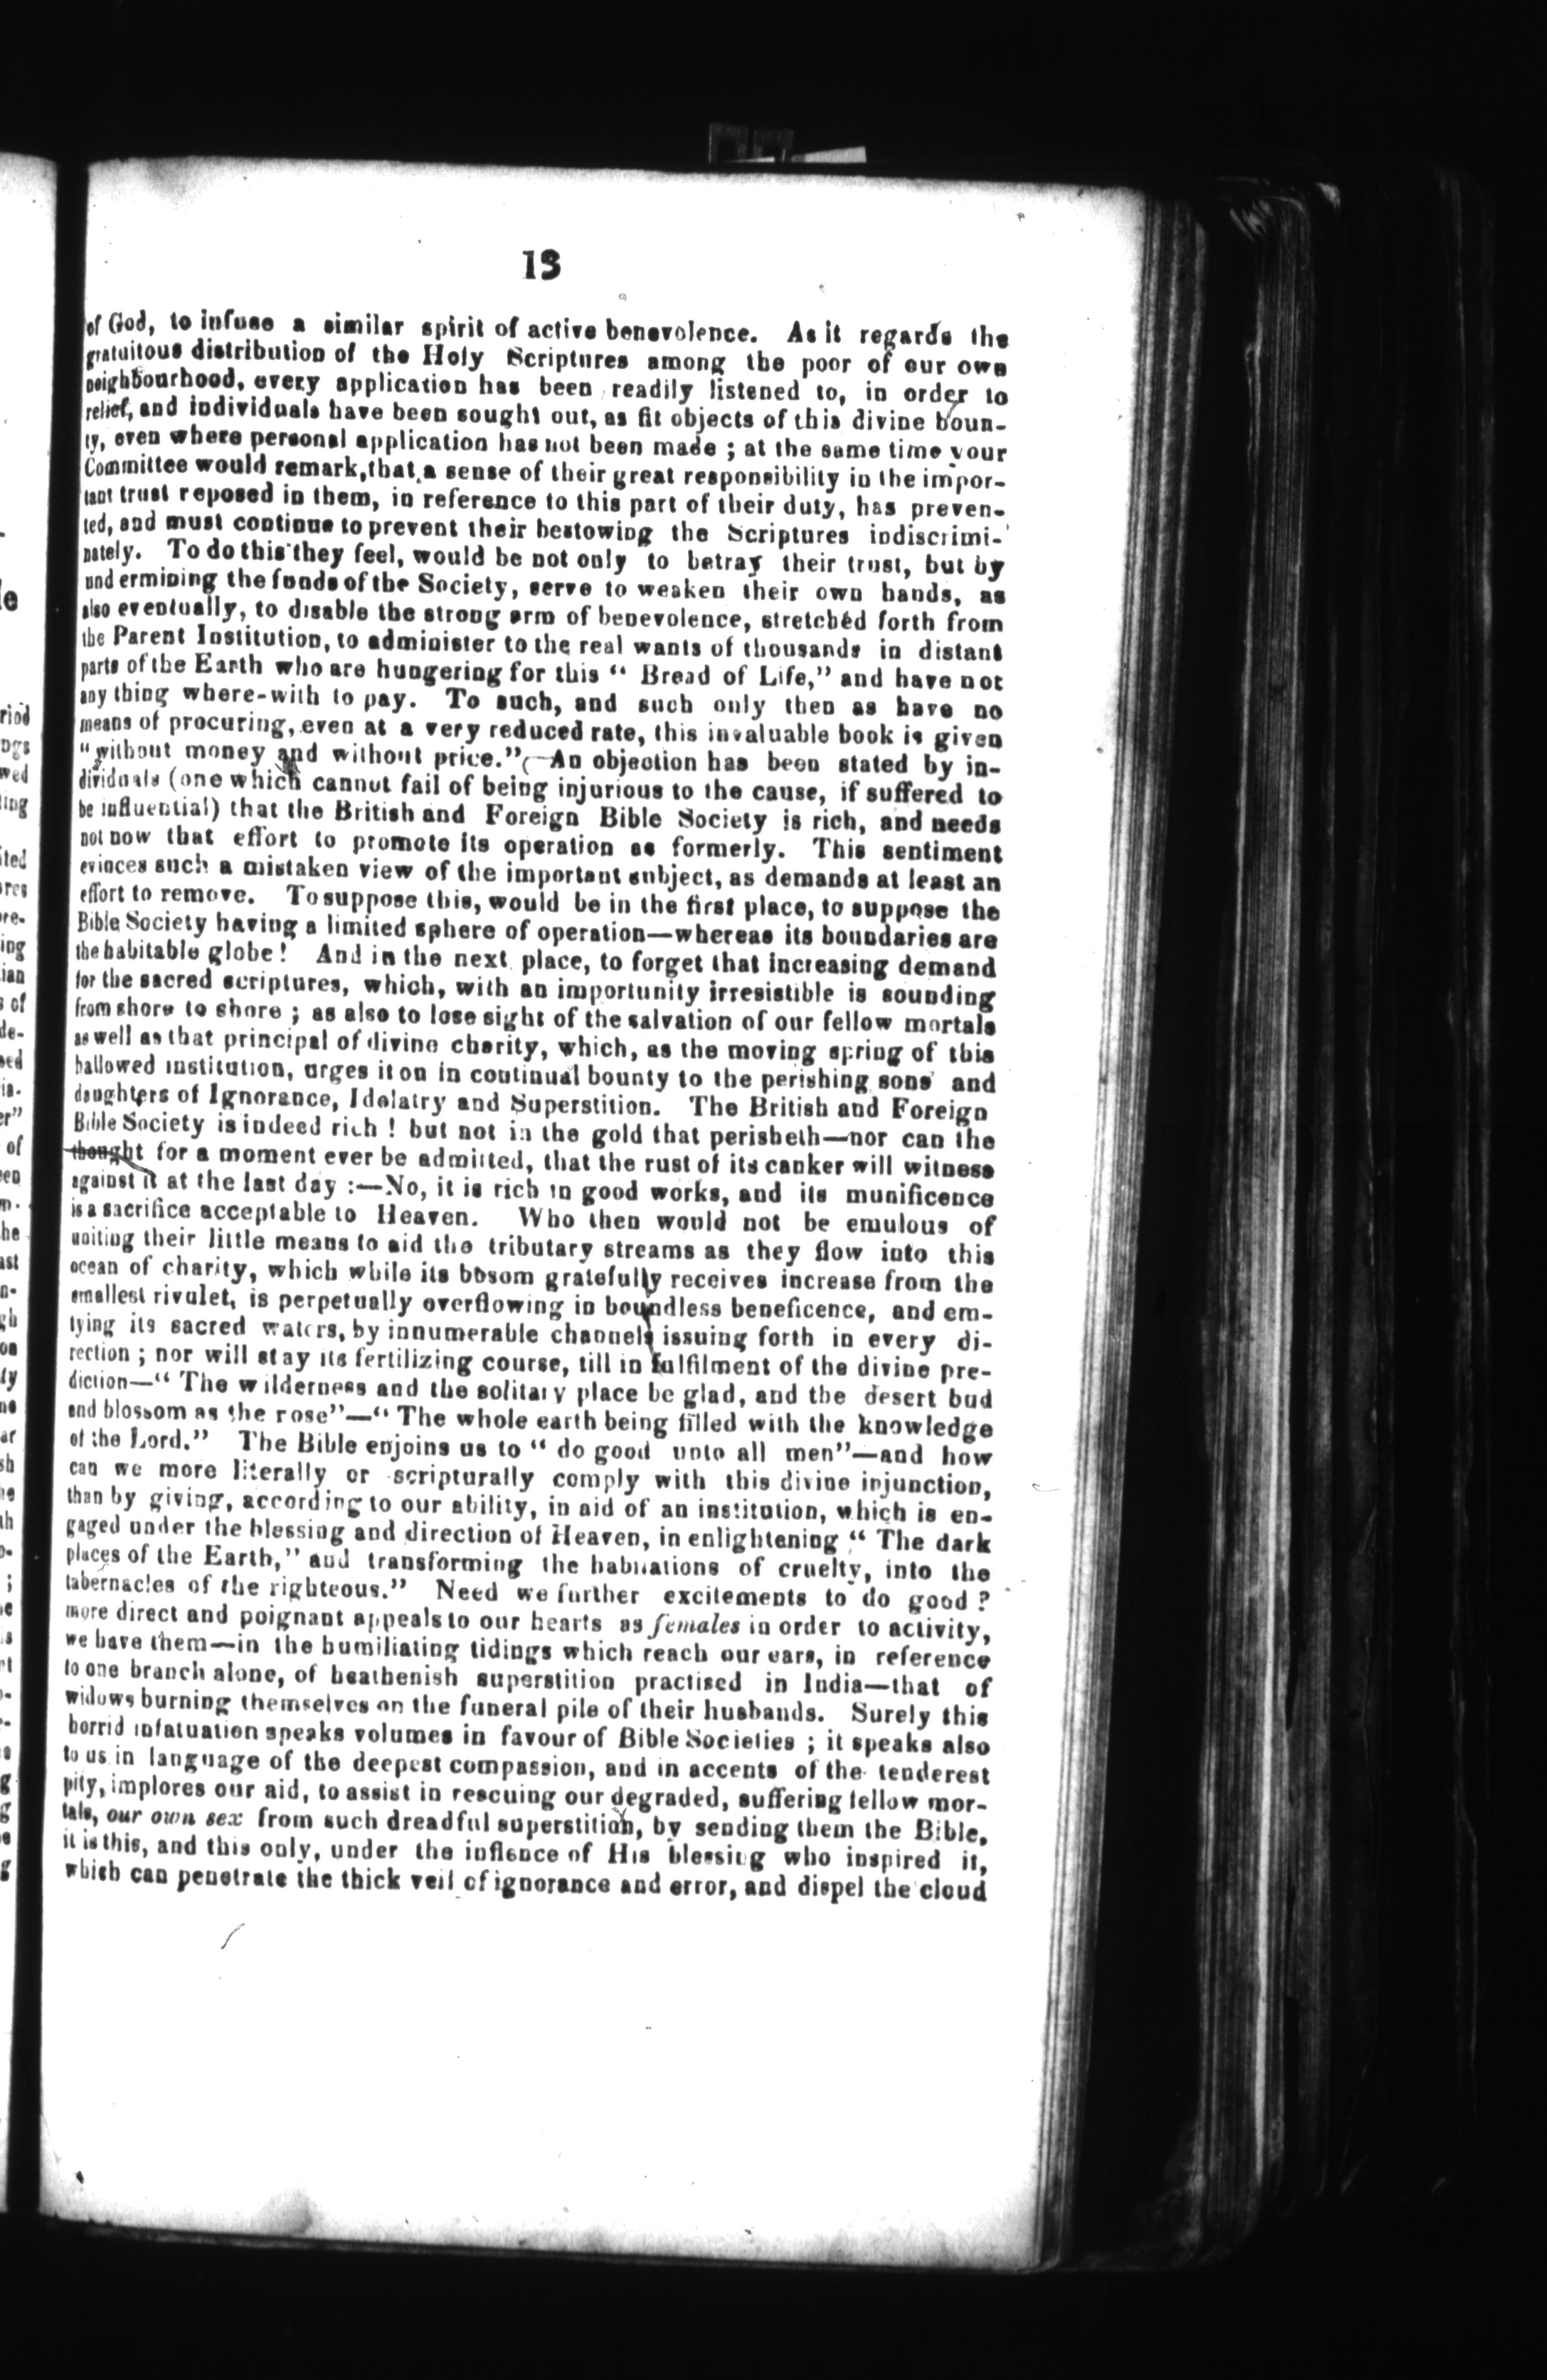 13
of God, to infuse a similar spirit of active benevolence. As it regards the
gratuitous distribution of the Holy Scriptures among the poor of our own
neighbourhood, every application has been readily listened to, in order to
relief, and individuals have been sought out, as fit objects of this divine boun-
ty, even where personal application has not been made ; at the same time your
Committee would remark, that a sense of their great responsibility in the impor-
tant trust reposed in them, in reference to this part of their duty, has preven-
ted, and must continue to prevent their bestowing the Scriptures indiscrimi-
nately. To do this they feel, would be not only to betray their trust, but by
undermining the funds of the Society, serve to weaken their own hands, as
also eventually, to disable the strong arm of benevolence, stretched forth from
the Parent Institution, to administer to the real wants of thousands in distant
parts of the Earth who are hungering for this “ Bread of Life,” and have not
any thing where-with to pay. To such, and such only then as have no
means of procuring, even at a very reduced rate, this invaluable book is given
“without money and without price.”—An objection has been stated by in-
dividuals (one which cannot fail of being injurious to the cause, if suffered to
be influential) that the British and Foreign Bible Society is rich, and needs
not now that effort to promote its operation as formerly. This sentiment
evinces such a mistaken view of the important subject, as demands at least an
effort to remove. To suppose this, would be in the first place, to suppose the
Bible Society having a limited sphere of operation—whereas its boundaries are
the habitable globe! And in the next place, to forget that increasing demand
for the sacred scriptures, which, with an importunity irresistible is sounding
from shore to shore ; as also to lose sight of the salvation of our fellow mortals
as well as that principal of divine charity, which, as the moving spring of this
hallowed institution, urges it on in continual bounty to the perishing sons and
daughters of Ignorance, Idolatry and Superstition. The British and Foreign
Bible Society is indeed rich ! but not in the gold that perisheth—nor can the
thought for a moment ever be admitted, that the rust of its canker will witness
against it at the last day :—No, it is rich in good works, and its munificence
is a sacrifice acceptable to Heaven. Who then would not be emulous of
uniting their little means to aid the tributary streams as they flow into this
ocean of charity, which while its bosom gratefully receives increase from the
smallest rivulet, is perpetually overflowing in boundless beneficence, and em-
tying its sacred waters, by innumerable channels issuing forth in every di-
rection ; nor will stay its fertilizing course, till in fulfilment of the divine pre-
diction—“ The wilderness and the solitary place be glad, and the desert bud
and blossom as the rose”—“ The whole earth being filled with the knowledge
of the Lord.” The Bible enjoins us to “ do good unto all men”—and how
can we more literally or scripturally comply with this divine injunction,
than by giving, according to our ability, in aid of an institution, which is en-
gaged under the blessing and direction of Heaven, in enlightening “ The dark
places of the Earth,” and transforming the habitations of cruelty, into the
tabernacles of the righteous.” Need we further excitements to do good ?
more direct and poignant appeals to our hearts as females in order to activity,
we have them—in the humiliating tidings which reach our ears, in reference
to one branch alone, of heathenish superstition practised in India—that of
widows burning themselves on the funeral pile of their husbands. Surely this
horrid infatuation speaks volumes in favour of Bible Societies ; it speaks also
to us in language of the deepest compassion, and in accents of the tenderest
pity, implores our aid, to assist in rescuing our degraded, suffering fellow mor-
tals, our own sex from such dreadful superstition, by sending them the Bible,
it is this, and this only, under the inflence of His blessing who inspired it,
which can penetrate the thick veil of ignorance and error, and dispel the cloud